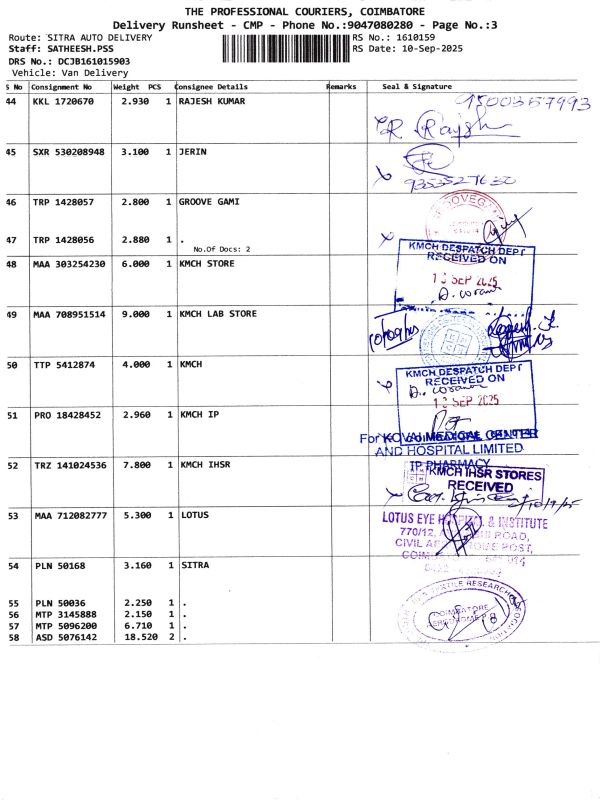 THE PROFESSIONAL COURIERS, COIMBATORE
Delivery Runsheet - CMP - Phone No.:9047080280 - Page No.:3
Route: SITRA AUTO DELIVERY
RS No.: 1610159
Staff: SATHEESH.PSS
RS Date: 10-Sep-2025
DRS No.: DCJB161015903
Vehicle: Van Delivery
S No Consignment No Weight PCS Consignee Details Remarks Seal & Signature
44 KKL 1720670 2.930 1 RAJESH KUMAR
9500357993
R Rajesh
45 SXR 530208948 3.100 1 JERIN
9353527630
46 TRP 1428057 2.800 1 GROOVE GAMI
47 TRP 1428056 2.880 1 .
No.Of Docs: 2
KMCH DESPATCH DEPT
RECEIVED ON
48 MAA 303254230 6.000 1 KMCH STORE
SEP 2025
49 MAA 708951514 9.000 1 KMCH LAB STORE
50 TTP 5412874 4.000 1 KMCH
KMCH DESPATCH DEPT
RECEIVED ON
SEP 2025
51 PRO 18428452 2.960 1 KMCH IP
For KOVAI MEDICAL CENTER
AND HOSPITAL LIMITED
IP PHARMACY
52 TRZ 141024536 7.800 1 KMCH IHSR
KMCH IHSR STORES
RECEIVED
10/9/25
53 MAA 712082777 5.300 1 LOTUS
LOTUS EYE HOSPITAL & INSTITUTE
770/12, ROAD,
CIVIL POST,
014
54 PLN 50168 3.160 1 SITRA
TEXTILE RESEARCH
COIMBATORE
AERODROME P
55 PLN 50036 2.250 1 .
56 MTP 3145888 2.150 1 .
57 MTP 5096200 6.710 1 .
58 ASD 5076142 18.520 2 .